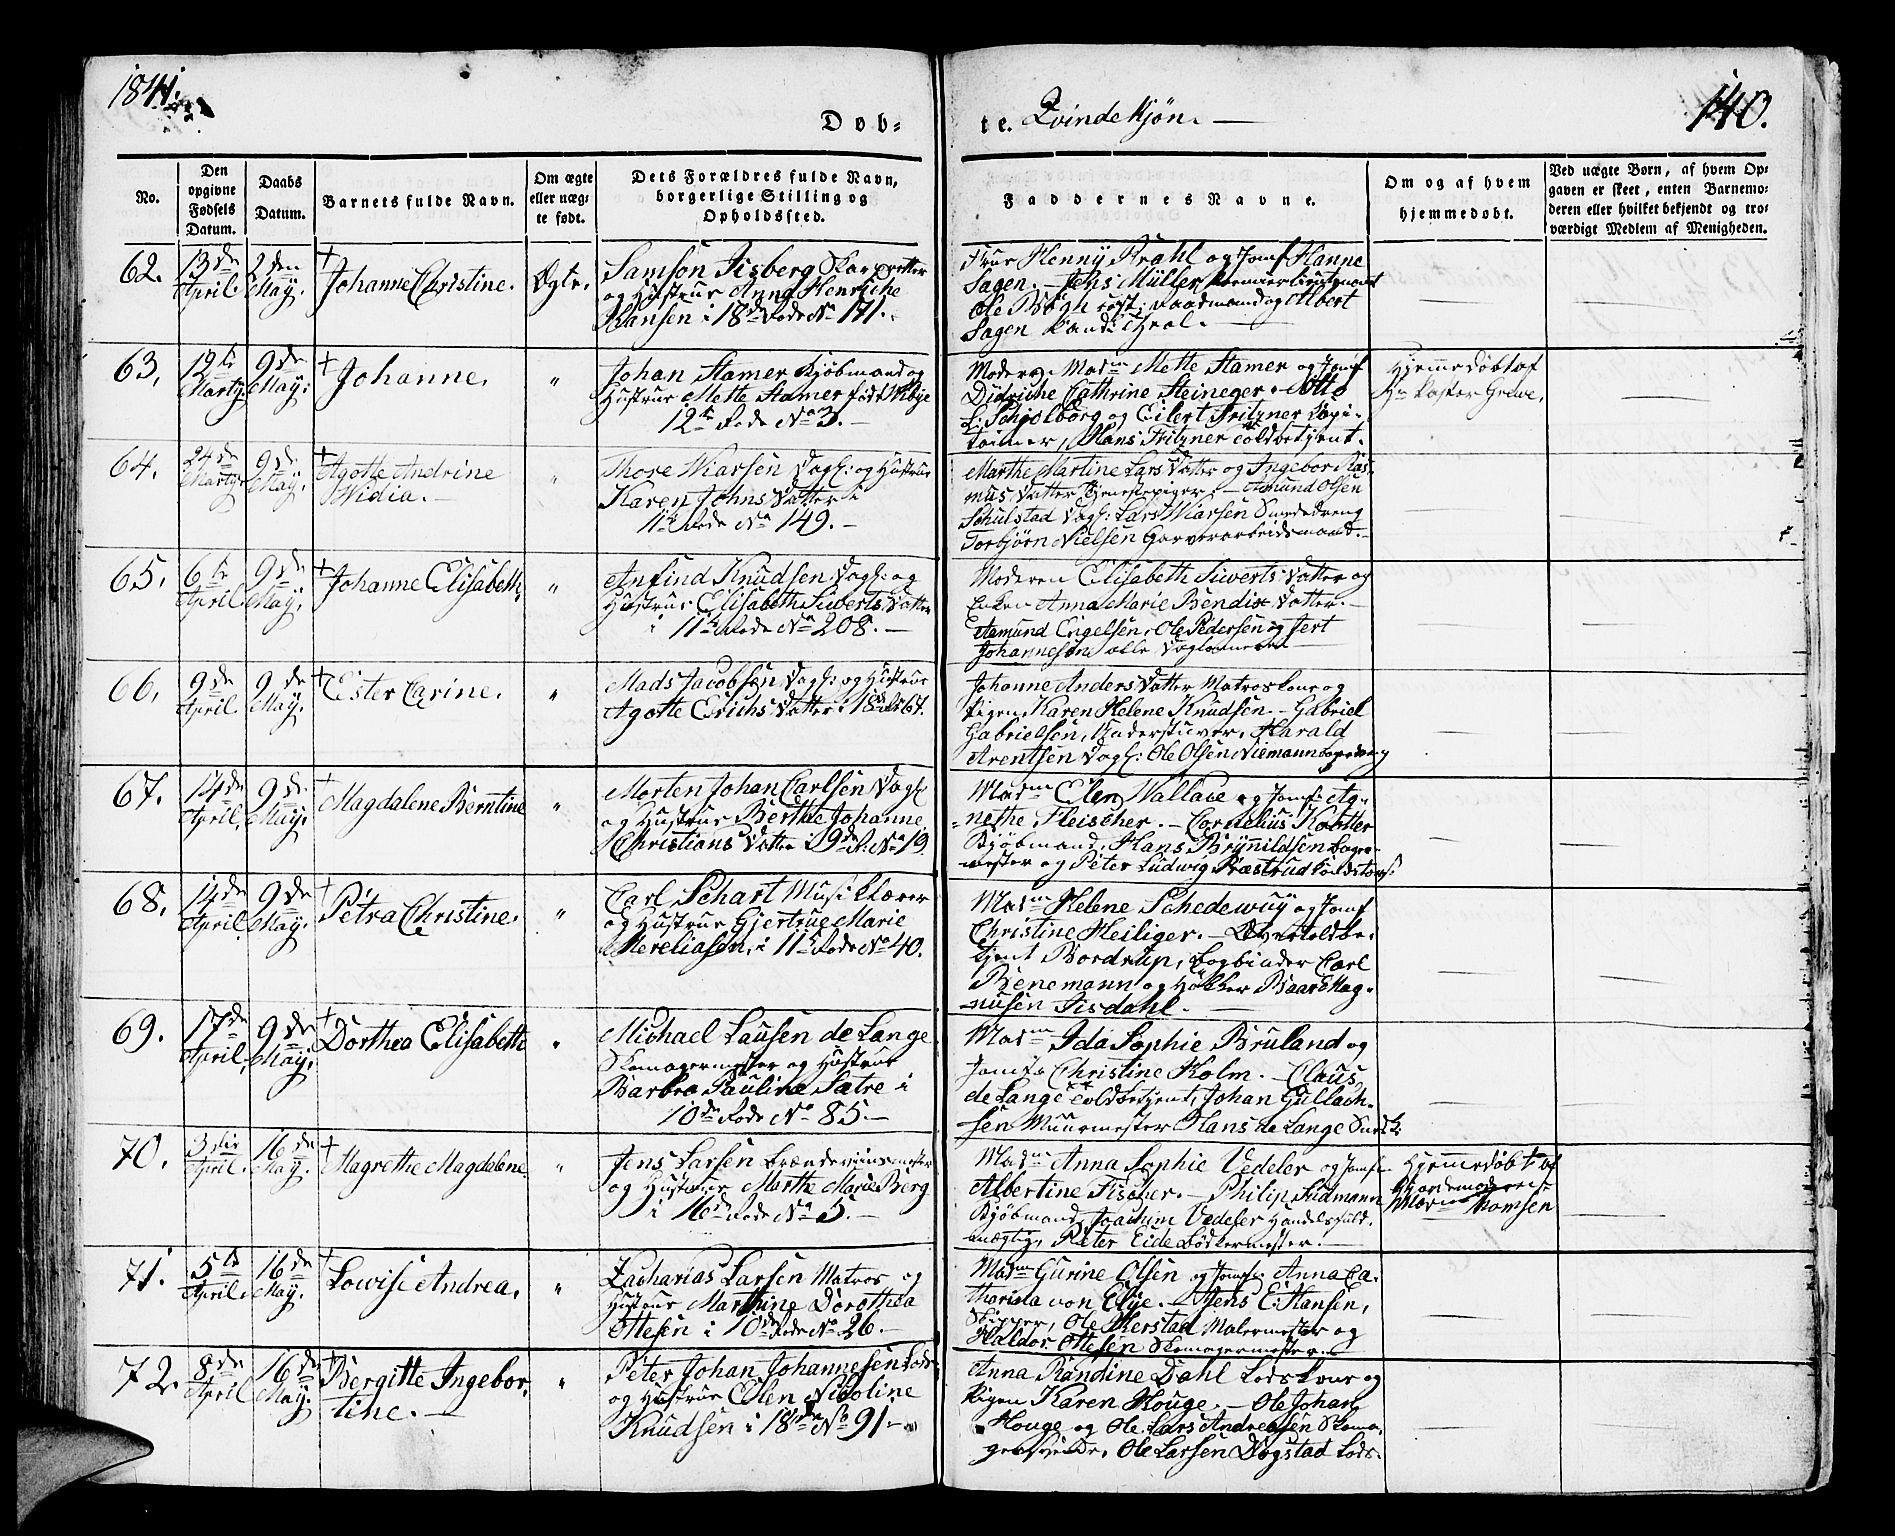 1841.
140.
Døb-
te. Qvindekjøn.
No.
Den opgivne Fødsels Datum.
Daabs Datum.
Barnets fulde Navn.
Om ægte eller uæg- te født.
Dets Forældres fulde Navn, borgerlige Stilling og Opholdssted.
Faddernes Navne.
Om og af hvem hjemmedøbt.
Ved uægte Børn, af hvem Op- gaven er skeet, enten Barnemo- deren eller hvilket bekjendt og tro- værdigt Medlem af Menigheden.
62. 13de April. 2den May. Johanne Christine. Ægte.
Samson Iisberg
og Hustrue Anna Henriche
Hansen i 18de Rode No 171.
Frue Henny Krahl og Jomf. Hanne
Sagen. - Jens Müller Premierlieutenant
Ole Bøgh Raadmand og Albert
Sagen
63. 12te Marty. 9de May. Johanne. "
Johan Stamer Kjøbmand og
Hustrue Mette Stamer født Wibye
12te Rode No 3.
Moderen Madm Mette Stamer og Jomf
Didriche Cathrine Steineger. - Otto
L. Schjolborg og Eilert Fritzner
Hans Fritzner Toldbetjent.
Hjemmedøbt af
Hr Pastor Greve.
64. 24de Marty 9de May. Agotte Andrine
Widia. "
Thore Wiarsen Dagl: og Hustrue
Karen Johns Datter i
11te Rode No 149.
Marthe Martine Lars Datter og Ingebor Ras
mus Datter Tjenestepiger. - Amund Olsen
Schulstad Dagl: Lars Wiarsen Smededreng
Torbjørn Nielsen Garverarbeidsmand.
65. 6te April. 9de May. Johanne Elisabeth. "
Anfind Knudsen Dagl: og
Hustrue Elisabeth Siwerts Datter
i 11te Rode No 208.
Moderen Elisabeth Siwerts Datter og
Enken Anna Marie Bendix Datter.
Aamund Engelsen, Ole Pedersen og Gert
Johannesen alle Daglønnere
66. 9de April. 9de May. Ester Carine. "
Mads Jacobsen Dagl: og Hustrue
Agotte Erichs Datter i 18de R 67.
Johanne Anders Datter Matroskone og
Pigen Karen Helene Knudsen. - Gabriel
Gabrielsen, Harald
Arentsen Dagl: Ole Olsen Niemann
67. 14de April. 9de May. Magdalene Berntine "
Morten Johan Carlsen Dagl
og Hustrue Berthe Johanne
Christians Datter i 9de R. No 19.
Madm Elen Wallace og Jomf: Ag-
nethe Fleischer. - Cornelius Kobtter
Kjøbmand, Hans Brynildsen Bager-
mester og Peter Ludwig Præstrud
68. 14de April. 9de May. Petra Christine. "
Carl Schart Musiklærer
og Hustrue Gjertrue Marie
Mereliasen, i 11te Rode No 40.
Madm Helene Schedewuy og Jomf
Christine Heiliger. - Overtoldbe-
tjent Bordrup, Bogbinder Carl
Benemann og Høkker Baar Mag-
nusen Iisdahl.
69. 17de April. 9de May. Dorthea Elisabeth "
Michael Lausen de Lange
Skomagermester og Hustrue
Barbra Pauline Sætre i
10de Rode No 85.
Madm Ida Sophie Bruland og
Jomf: Christine Holm. - Claus
de Lange Toldbetjent, Johan Gullach-
sen Muurmester Hans de Lange
70. 3die April. 16de May. Magrethe Magdalene "
Jens Larsen Brændeviinsmester
og Hustrue Marthe Marie Berg
i 16de Rode No 5.
Madm Anna Sophie Vedeler og Jomf
Albertine Fischer. - Philip Südmann
Kjøbmand, Joachim Vedeler Handelsfuld-
mægtig, Peter Eide Bødkermester.
Hjemmedøbt af
Gjordemoder
Madm Thomsen
71. 5te April. 16de May. Lowise Andrea. "
Zacharias Larsen Matros og
Hustrue Marthine Dorothea
Ottesen i 10de Rode No 26.
Madm Gurine Olsen og Jomf. Anna Ca-
tharina von Elye. - Jens E. Hansen,
Skipper, Ole Kerstad Malermester og
Haldor Ottesen Skomagermester.
72. 8de April 16de May. Bergitte Ingebor-
tine. "
Peter Johan Johannesen Lods
og Hustrue Elen Nicoline
Knudsen i 18de R No 91
Anna Randine Dahl Lodskone og
Pigen Karen Houge. - Ole Johan
Houge og Ole Lars Andreasen Skoma-
gersvende, Ole Larsen Døgstad Lods.